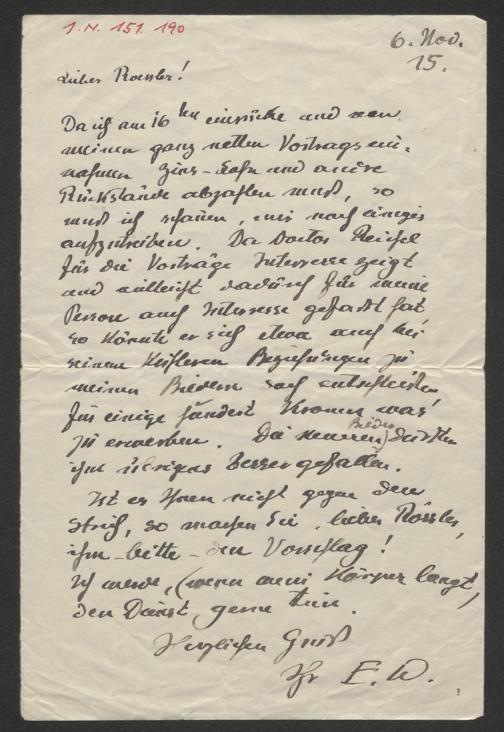 I. N. 151. 190
6. Nov.
15.
Lieber Roessler!
Da ich am 16ten einrücke und von
meinen ganz netten Vortragsein-
nahmen Zins-Lohn und andere
Rückstände abzahlen muß, so
muß ich schauen, mir noch einiges
aufzutreiben. Da Doctor Reichel
für die Vorträge Interesse zeigt
und vielleicht dadurch für meine
Person auch Interesse gefaßt hat,
so könnte er sich etwa auch bei
seinen Beziehungen zu
meinen Bildern doch entschließen
für einige hundert Kronen was
zu erwerben. Die neueren Bilder dürften
ihm übrigens besser gefallen.
Ist es Ihnen nicht gegen den
Strich, so machen Sie, lieber Rössler,
ihm - bitte - den Vorschlag!
Ich werde, (wenn mein Körper langt,
den Dienst gerne tun.
Herzlichen Gruß
Ihr E. W.